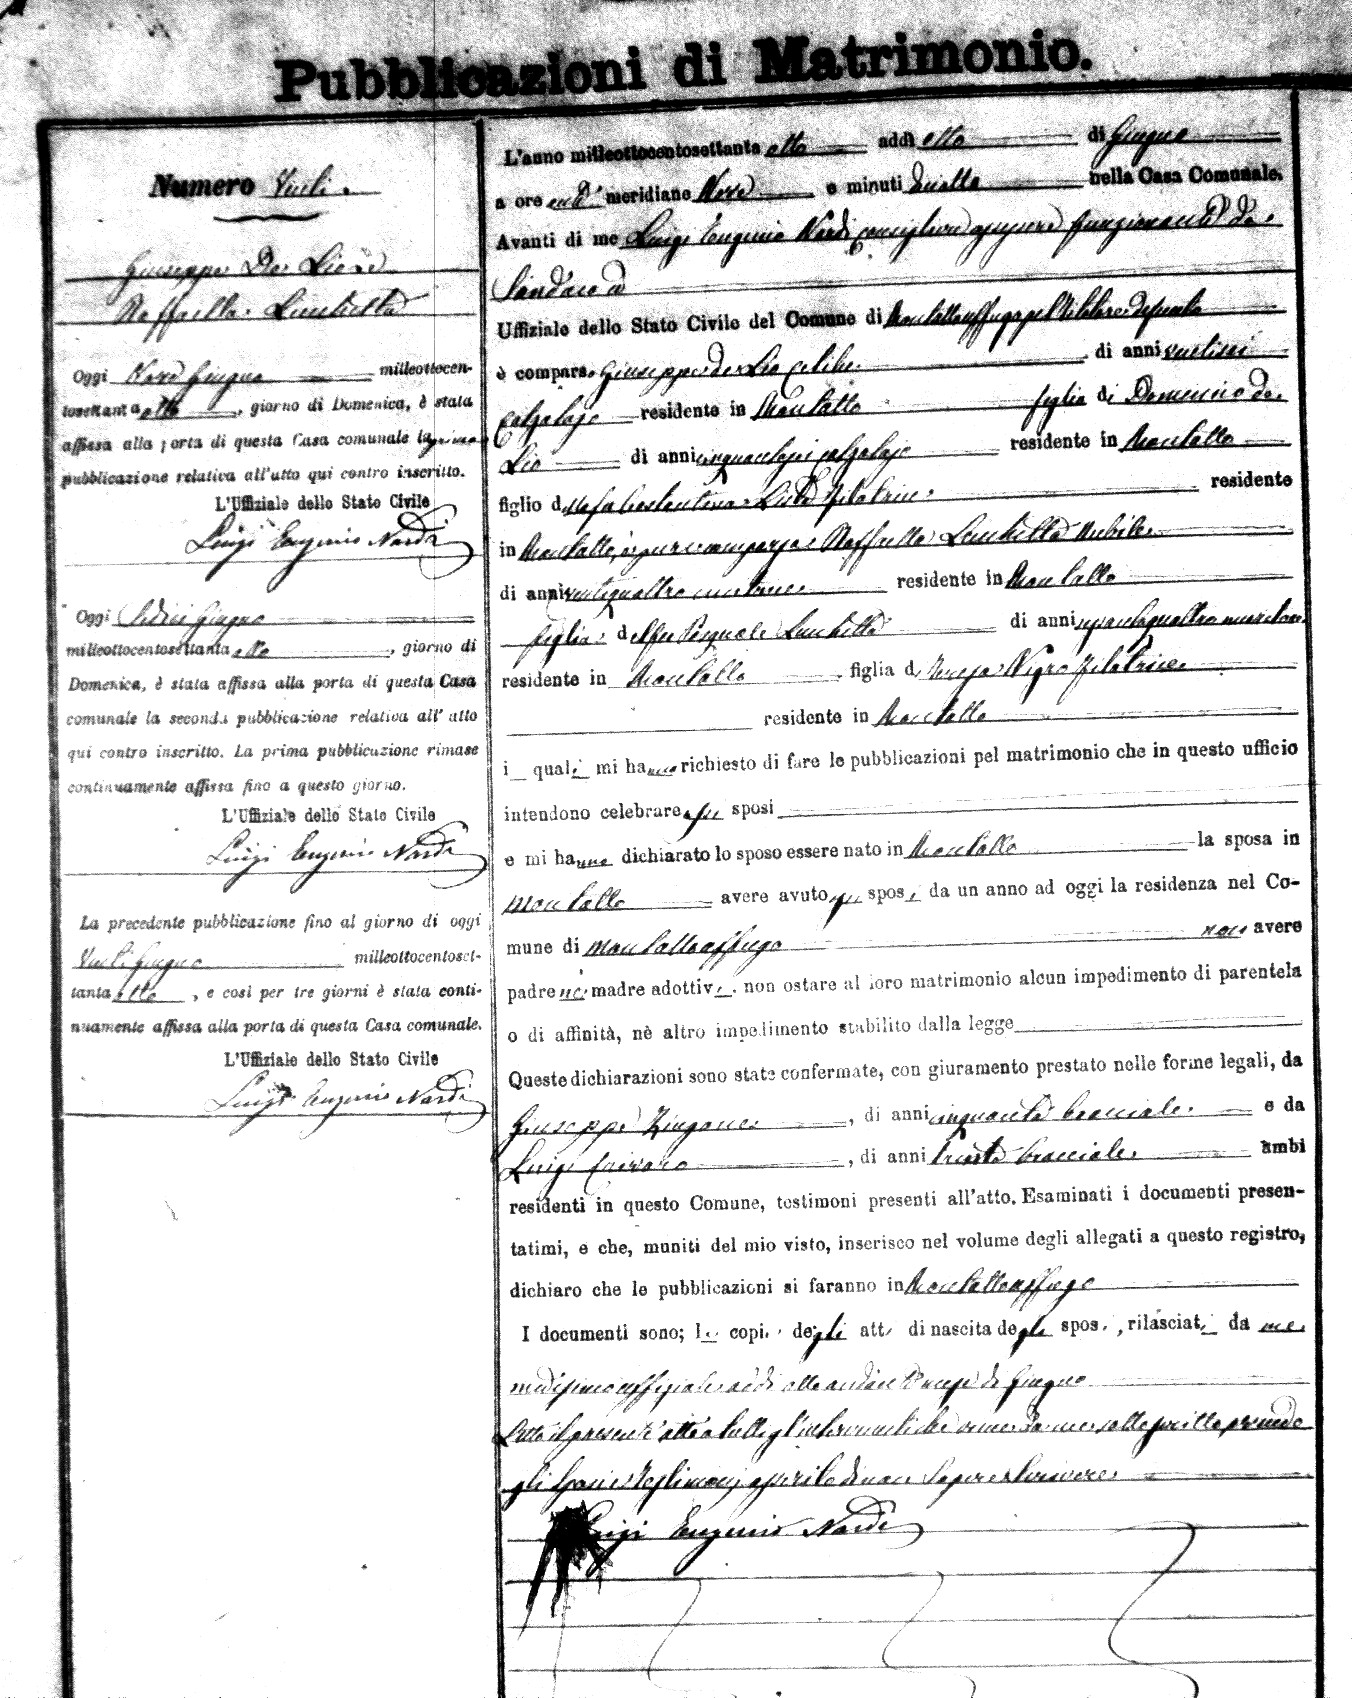 Pubblicazioni di Matrimonio.
Numero Venti
Giuseppe De Lio e
Raffaella Lucchetta
Oggi Nove Giugno milleottocen-
tosettanta otto, giorno di Domenica, è stata
affissa alla porta di questa Casa comunale la prima
pubblicazione relativa all'atto qui contro inscritto.
L'Uffiziale dello Stato Civile
Luigi Eugenio Nardi
Oggi Sedici Giugno
milleottocentosettanta otto, giorno di
Domenica, è stata affissa alla porta di questa Casa
comunale la seconda pubblicazione relativa all'atto
qui contro inscritto. La prima pubblicazione rimase
continuamente affissa fino a questo giorno.
L'Uffiziale dello Stato Civile
Luigi Eugenio Nardi
La precedente pubblicazione fino al giorno di oggi
Venti Giugno milleottocentoset-
tanta otto, e così per tre giorni è stata conti-
nuamente affissa alla porta di questa Casa comunale.
L'Uffiziale dello Stato Civile
Luigi Eugenio Nardi
L'anno milleottocentosettanta otto addì otto di Giugno
a ore anti meridiane Nove e minuti quattro nella Casa Comunale.
Avanti di me Luigi Eugenio Nardi consigliere funzionante da
Sindaco
Uffiziale dello Stato Civile del Comune di Montaltouffugo pel titolare
è comparso Giuseppe de Lio celibe di anni ventisei
calzolajo residente in Montalto figlio di Domenico de
Lio di anni calzolajo residente in Montalto
figlio di filatrice residente
in Montalto, è pure comparsa Raffaella Lucchetta Nubile
di anni ventiquattro residente in Montalto
figlia di Pasquale Lucchetta di anni
residente in Montalto figlia di Teresa Nigro filatrice
residente in Montalto
i quali mi hanno richiesto di fare le pubblicazioni pel matrimonio che in questo ufficio
intendono celebrare essi sposi
e mi hanno dichiarato lo sposo essere nato in Montalto la sposa in
Montalto avere avuto sposi da un anno ad oggi la residenza nel Co-
mune di Montaltouffugo non avere
padre nè madre adottivi. non ostare al loro matrimonio alcun impedimento di parentela
o di affinità, nè altro impedimento stabilito dalla legge
Queste dichiarazioni sono state confermate, con giuramento prestato nelle forme legali, da
Giuseppe Zingone, di anni cinquanta bracciale e da
Luigi, di anni trenta bracciale ambi
residenti in questo Comune, testimoni presenti all'atto. Esaminati i documenti presen-
tatimi, e che, muniti del mio visto, inserisco nel volume degli allegati a questo registro,
dichiaro che le pubblicazioni si faranno in Montaltouffugo
I documenti sono; le copie degli atti di nascita degli sposi, rilasciati da me
medesimo uffiziale addì otto andante mese di Giugno
Letto il presente atto a tutti gl'intervenuti
gli sposi e testimonj di non sapere scrivere
Luigi Eugenio Nardi